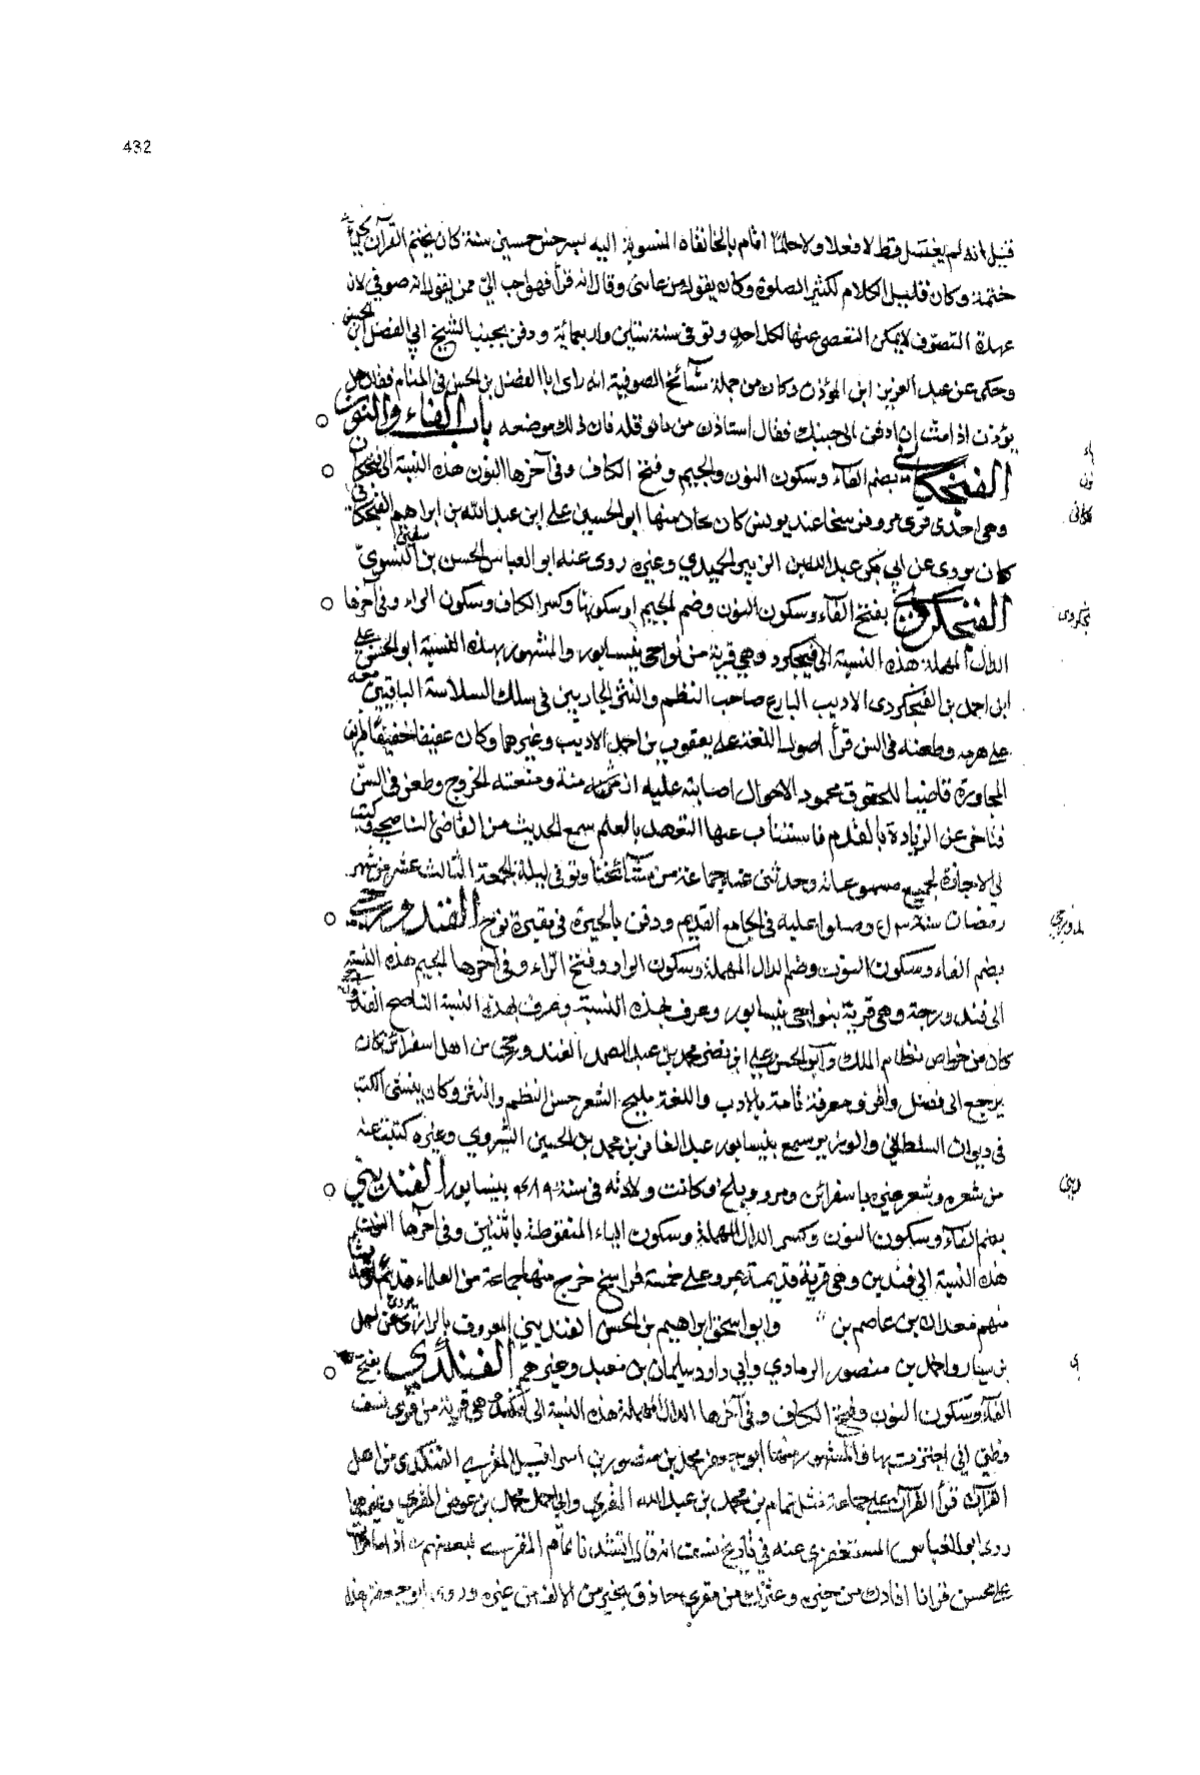 432
قيل انه لم يغتسل قط لا فعلا ولا حلما اقام بالخانقاه المنسوبة اليه بسرخس خمسين سنة كان يختم القرآن
ختمة وكان قليل الكلام كثير الصلوة وكان يقول من عاسى وقال انه قرأ فهو احب الي ممن يقول انه صوفي لان
عهدة التصوف لا يمكن التقصي عنها لكل احد وتوفي سنة ستين واربعمائة ودفن بجنب الشيخ ابي الفضل ابن الحسن
وحكى عن عبد العزيز ابن المؤذن وكان من جملة مشائخ الصوفية انه راى ابا الفضل بن الحسن في المنام فقال هل
يؤذن اذا مت ان ادفن الى جنبك فقال استاذن من قبله فان ذلك موضعه باب الفاء والنون
الفنجكاني بضم الفاء وسكون النون والجيم وفتح الكاف وفي آخرها النون هذه النسبة الى فنجكان
وهي احدى قرى مرو عند كان منها ابو الحسين علي ابن عبد الله بن ابراهيم الفنجكاني
كان يروي عن ابي بكر عبد الله بن الزبير الحميدي وغيره روى عنه ابو العباس الحسن بن سفين النسوي
الفنجكردي بفتح الفاء وسكون النون وضم الجيم او سكونها وكسر الكاف وسكون الراء وفي آخرها
الدال المهملة هذه النسبة الى فنجكرد وهي قرية من نواحي نيسابور والمشهور بهذه النسبة ابو الحسن علي
ابن احمد بن الفنجكردي الاديب البارع صاحب النظم والنثر الجاريين في سلك السلاسة الباقيين معه
على هرمه وطعنه في السن قرأ اصول اللغة على يعقوب بن احمد الاديب وغيرهما وكان عفيفا خفيفا ظريف
المجاورة قاضيا للحقوق محمود الاحوال اصابته علة ازمنته ومنعته الخروج وطعن في السن
فتاخر عن الزيادة بالقدم فاستناب عنها التفصد بالعلم سمع الحديث من القاضي الناصحي وكتب
لي الاجازة لجميع مسموعاته وحدثني عنه جماعة من مشائخنا وتوفي ليلة الجمعة الثالث عشر من شهر
رمضان سنة وصلوا عليه في الجامع القديم ودفن بالحيرة في مقبرة نوح الفندورجي
بضم الفاء وسكون النون وضم الدال المهملة وسكون الواو وفتح الراء وفي آخرها الجيم هذه النسبة
الى فندورجة وهي قرية بنواحي نيسابور وعرف بهذه النسبة وعرف بهذه النسبة الناصح
كان من خواص نظام الملك وابو الحسن علي ابن نصر محمد بن عبد الصمد الفندورجي من اهل اسفراين كان
يرجع الى فضل وافر ومعرفة تامة بالادب واللغة مليح الشعر حسن النظم والنثر وكان ينشئ الكتب
في ديوان السلطان والوزير سمع بنيسابور عبد الغافر بن محمد بن الحسين الشيروي وغيره كتبت عنه
من شعره وشعر غيره باسفراين ومرو وبلخ وكانت ولادته في سنة ٤٨٩ بنيسابور الفنديني
بضم الفاء وسكون النون وكسر الدال المهملة وسكون الياء المنقوطة باثنتين وفي آخرها النون
هذه النسبة الى فندين وهي قرية قديمة بمرو على خمسة فراسخ خرج منها جماعة من العلماء قديما
منهم بن عاصم بن وابو اسحق ابراهيم بن الحسن الفنديني المعروف بالرازي
بن سيار واحمد بن منصور الرمادي وابي داود سليمان بن معبد وغيرهم الفنكدي بفتح
الفاء وسكون النون وفتح الكاف وفي آخرها الدال المهملة هذه النسبة الى فنكد وهي قرية من قرى نسف
وظني اني اجتزت بها فالمشهور منها ابو جعفر محمد بن منصور بن اسرافيل المقرئ الفنكدي من اهل
القرآن قرأ القرآن على جماعة مثل تمام بن محمد بن عبد الله المقري وابي احمد محمد بن عوض المقري وغيرهما
روى ابو العباس المستغفري عنه في تاريخ نسف انه قال انشدنا تمام المقرئ لبعضهم اذا ما قرأت
على محسن قرانا افادك من خيره وعشرك من مقري حاذق بخير من الالف من غيره وروى ابو جعفر هذه